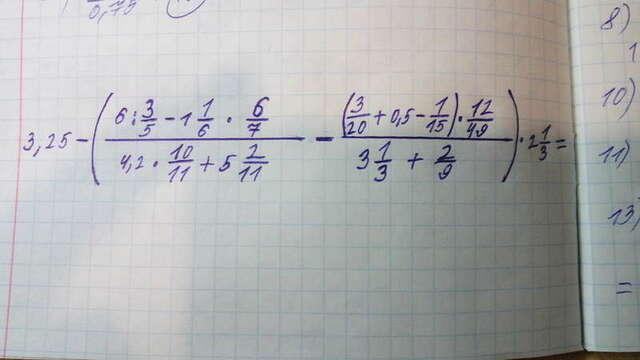 0,75
3,25 - ( (6 : 3/5 - 1 1/6 · 6/7) / (4,2 · 10/11 + 5 2/11) - ((3/20 + 0,5 - 1/15) · 12/49) / (3 1/3 + 2/9) ) · 2 1/3 =
8)
1
10)
11)
13)
=